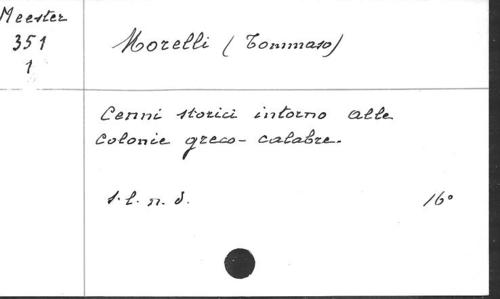 Meester
351
1
Morelli (Tommaso)
Cenni storici intorno alle
colonie greco-calabre.
s. l. n. d. 16°